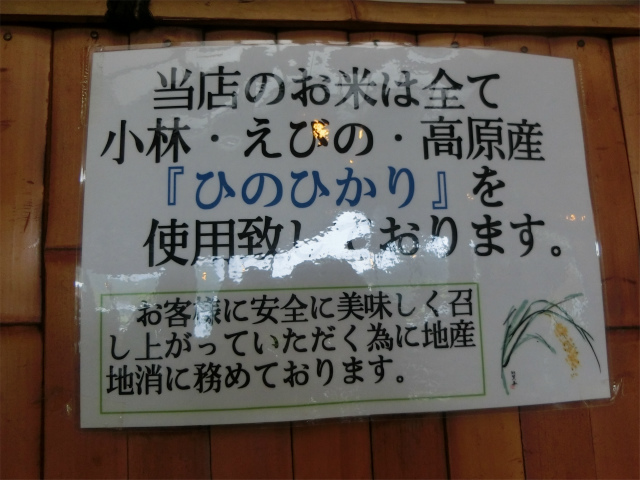 当店のお米は全て
小林・えびの・高原産
『ひのひかり』を
使用致しております。
お客様に安全に美味しく召
し上がっていただく為に地産
地消に務めております。